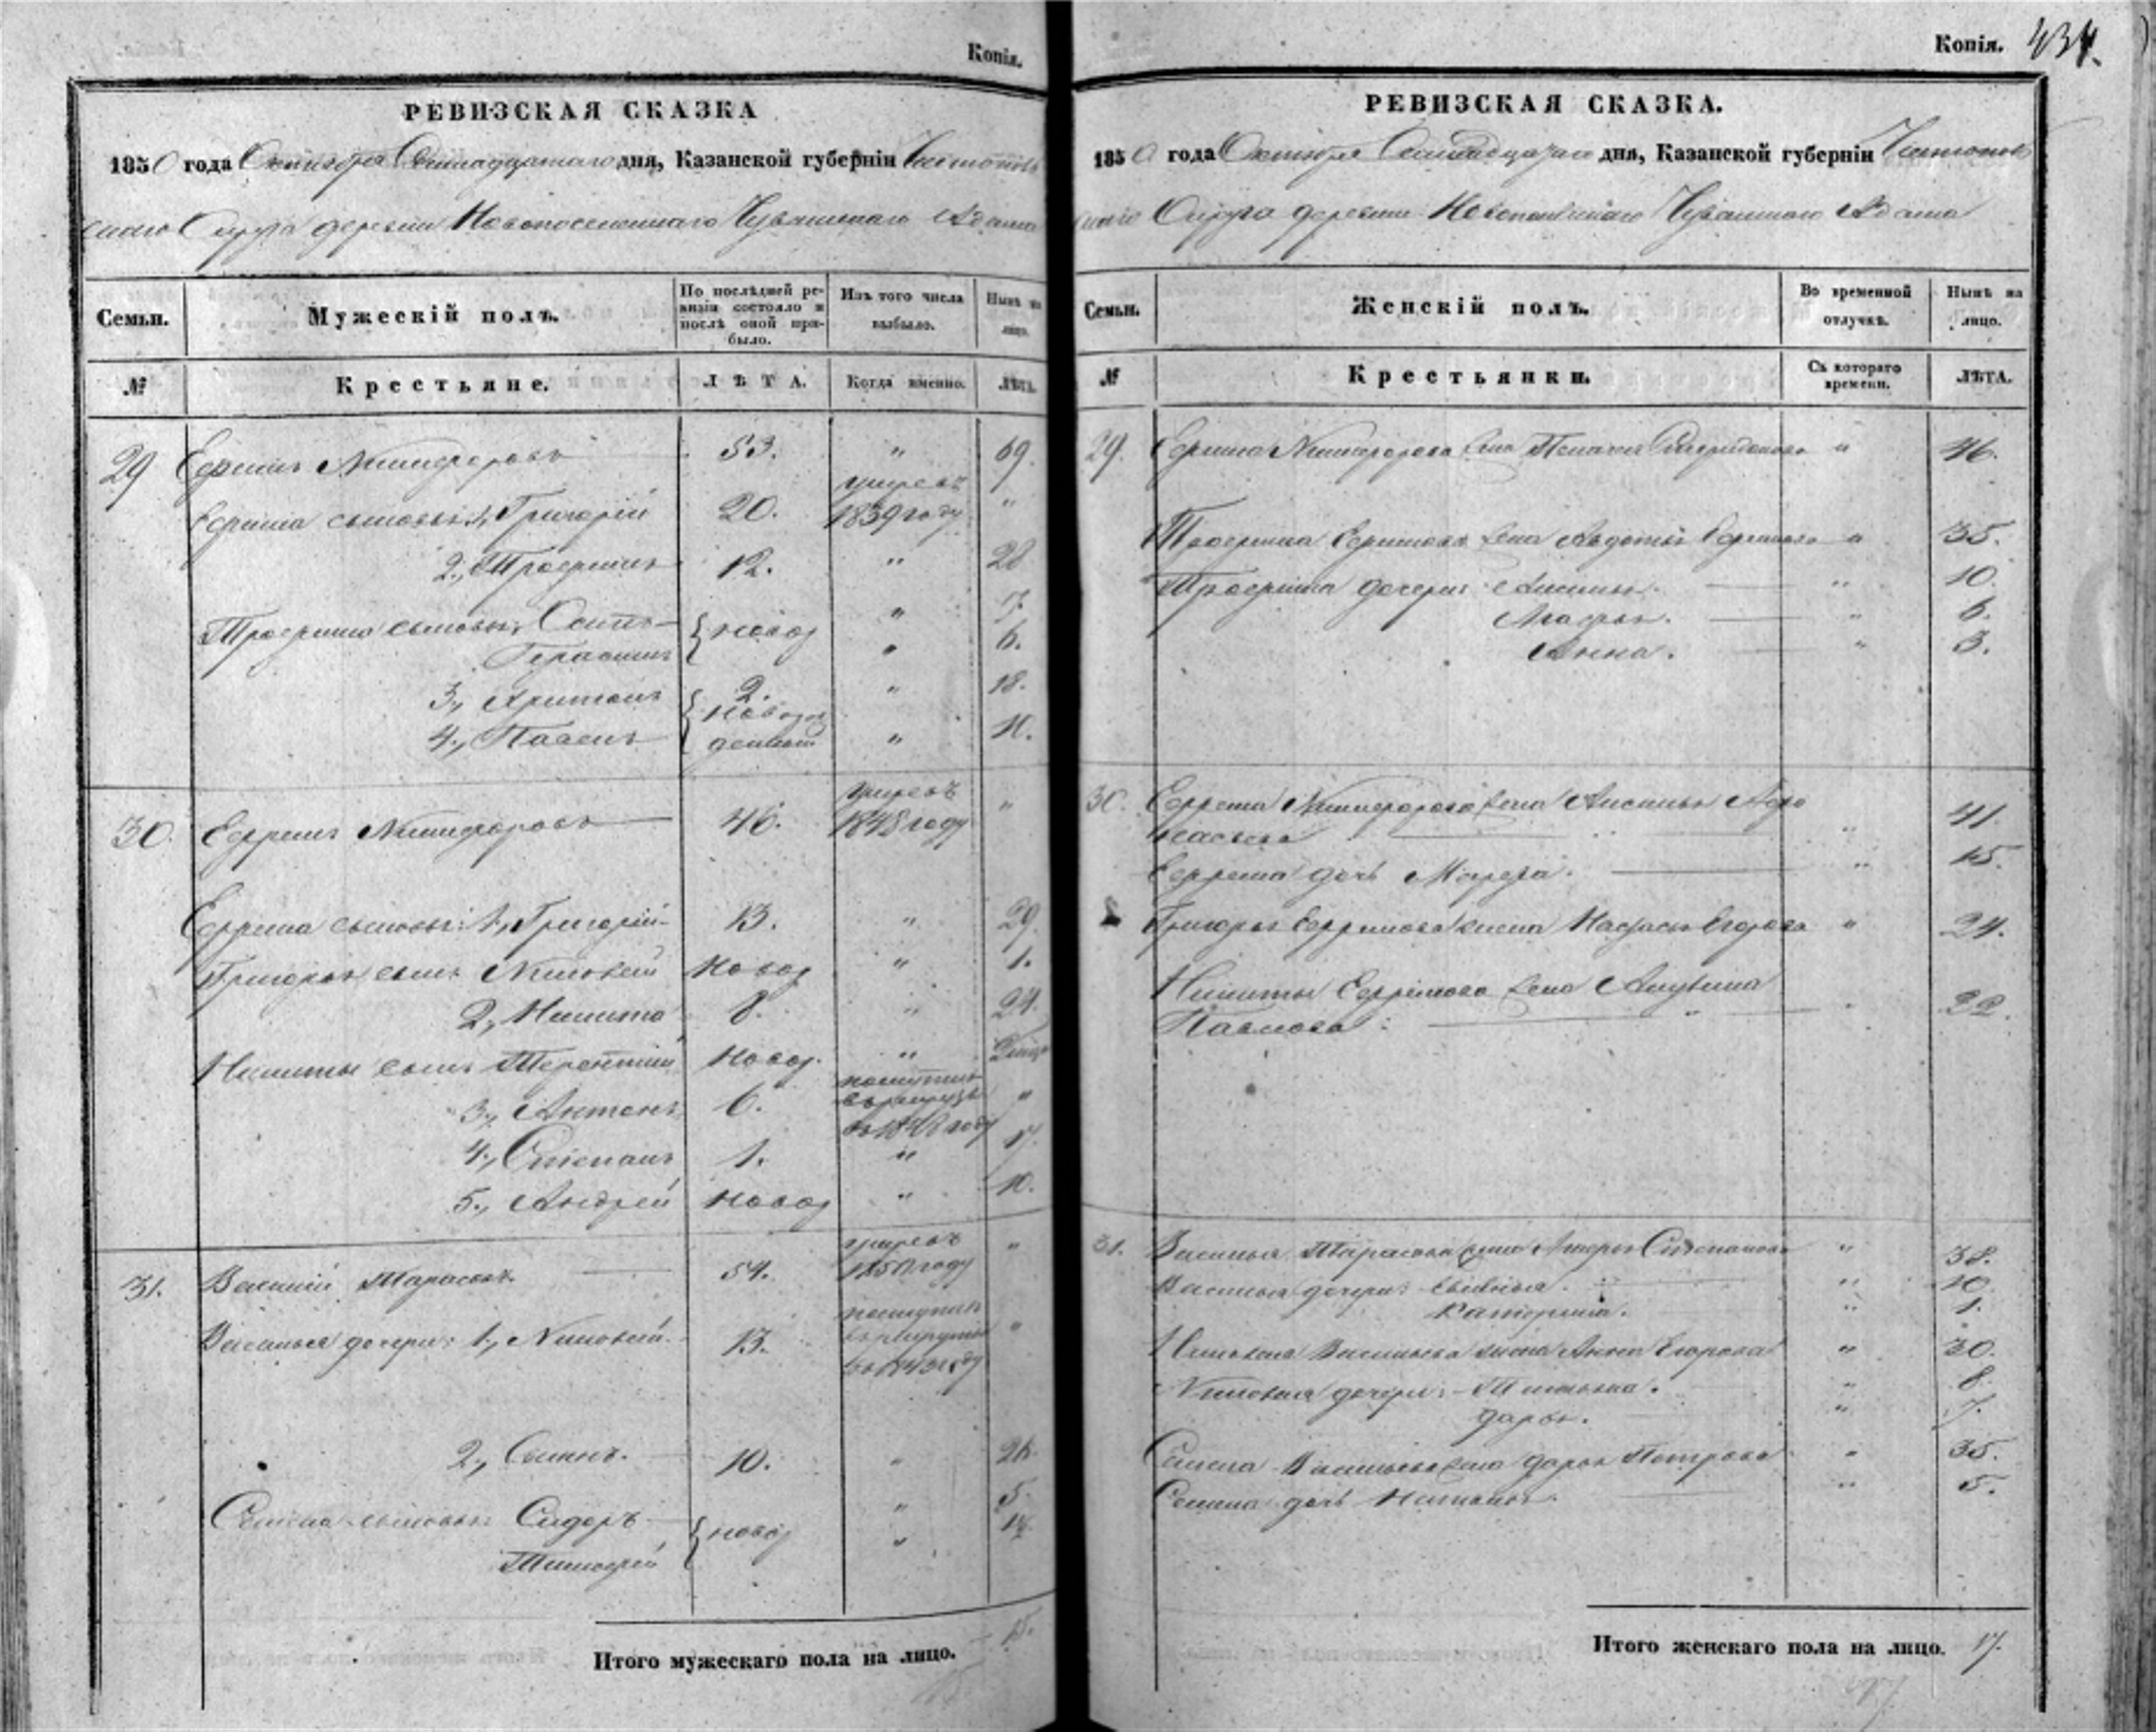 Копія.
РЕВИЗСКАЯ СКАЗКА
1850 года Октября дня, Казанской губерніи Чистополь
скаго Округа деревни Новопоселеннаго Чувашскаго Адама
Семьи.
Мужескій полъ.
По послѣдней ре-
визіи состояло и
послѣ оной при-
было.
Изъ того числа
выбыло.
Нынѣ на
лицо.
№
Крестьяне.
ЛѢТА.
Когда именно.
ЛѢТА.
29 Ефимъ Никифоровъ 53. " 69.
Ефима сыновья: 1, Григорій 20. умеръ 1839 году "
2., Трофимъ 12. " 28
Трофима сыновья: { новор " 7.
Герасимъ " 6.
3., 2. " 18.
4., Павелъ { новорож
денный " 10.
30. Ефремъ Никифоровъ 46. умеръ 1848 году "
Ефрема сыновья: 1., Григорій 13. " 29.
Григорья сынъ новор " 1.
2., Никита 8. " 24.
Никиты сынъ Терентий новор. "
3., Антонъ 6. поступилъ
в рекруты
"
4., Степанъ 1. " 17.
5., Андрей новор " 10.
31. Василій Тарасовъ. 54. умеръ 1850 году "
Василья 1., 13. поступилъ
в рекруты
"
2., 10. " 26.
Семена сыновья: Сидоръ { новор " 5.
Тимофей "
Итого мужескаго пола на лицо. 15.
Копія. 434.
РЕВИЗСКАЯ СКАЗКА.
1850 года Октября дня, Казанской губерніи Чистополь
скаго Округа деревни Новопоселеннаго Чувашскаго Адама
Семьи.
Женскій полъ.
Во временной
отлучкѣ.
Нынѣ на
лицо.
№
Крестьянки.
Съ котораго
времени.
ЛѢТА.
29. Ефима Никифорова жена Пелагея " 46.
Трофима Ефимова жена Авдотья Ефимова " 35.
Трофима дочери: " 10.
" 6.
Анна. " 3.
30. Ефрема Никифорова жена Аксинья Афо
насьева " 41.
Ефрема дочь " 15.
Григорья Ефремова жена Настасья Егорова " 24.
Никиты Ефремова жена Акулина
Павлова: " 22.
31. Василья Тарасова жена Степанова " 38.
Василья дочери: " 10.
Катерина. " 1.
Васильева жена Анна Егорова " 30.
дочери: Татьяна. " 8.
Дарья. " 7.
Семена Васильева жена Дарья Петрова " 35.
Семена дочь Наталья. " 5.
Итого женскаго пола на лицо. 17.